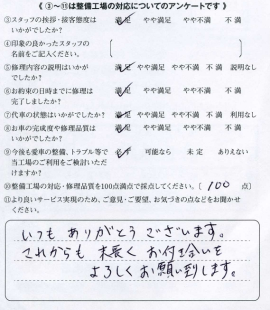 《 ③～⑪は整備工場の対応についてのアンケートです 》
③スタッフの挨拶・接客態度は 満足 やや満足 やや不満 不満
いかがでしたか？
④印象の良かったスタッフの
名前をご記入ください。
⑤修理内容の説明はいかが 満足 やや満足 やや不満 不満 説明なし
でしたか？
⑥お約束の日時までに修理は 満足 やや満足 やや不満 不満
完了しましたか？
⑦代車の状態はいかがでしたか？ 満足 やや満足 やや不満 不満 利用なし
⑧お車の完成度や修理品質は 満足 やや満足 やや不満 不満
いかがでしたか？
⑨今後も愛車の整備、トラブル等で 必ず 可能なら 未定 ありえない
当工場のご利用をご検討いただ
けますか？
⑩整備工場の対応・修理品質を100点満点で採点してください。〔 100 点〕
⑪より良いサービス実現のため、ご意見・ご要望、お気づきの点などをお聞かせ
ください。
いつもありがとうございます。
これからも末長くお付き合いを
よろしくお願い致します。